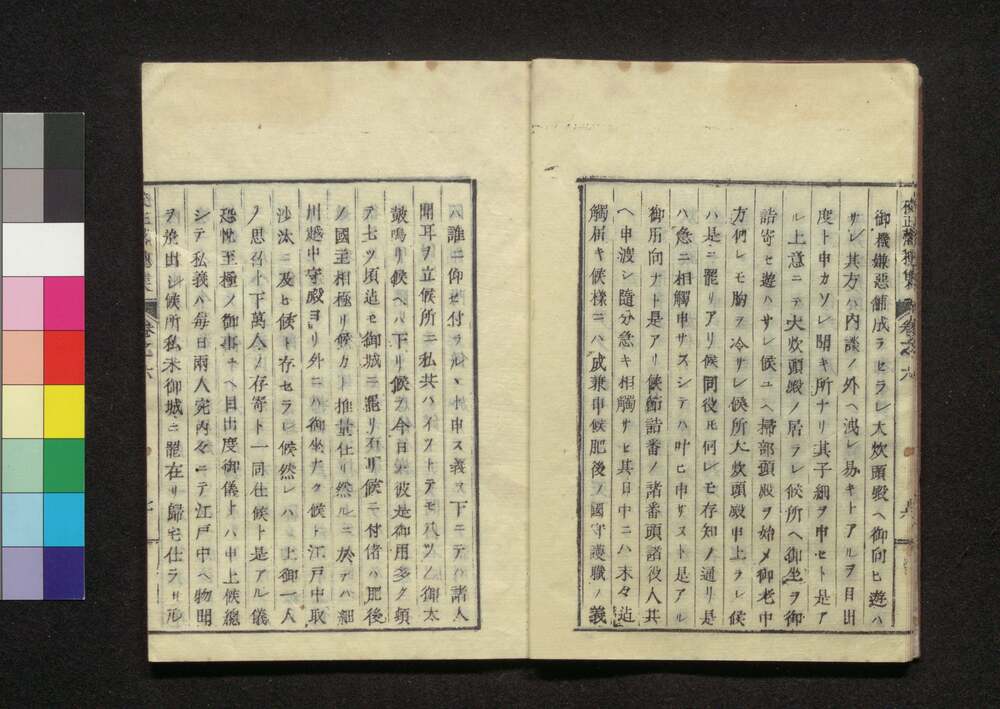 御機嫌惡鋪成ラセラレ大炊頭殿ヘ御向ヒ遊ハ
サレ其方ハ内談ノ外ヘ洩レ易キトアルヲ目出
度ト申カソレ聞キ所ナリ其子細ヲ申セト是ア
ル上意ニテ大炊頭殿ノ居ラレ候所ヘ御坐ヲ御
詰寄セ遊ハサレ候ユヘ掃部頭殿ヲ始メ御老中
方何レモ胸ヲ冷サレ候所大炊頭殿申上ラレ候
ハ是ニ罷リアリ候同役𪜈何レモ存知ノ通リ是
ハ急ニ相觸申サスシテハ叶ヒ申サスト是アル
御用向ナト是アリ候節詰番ノ諸番頭諸役人其
ヘ申渡シ隨分急キ相觸サセ其日中ニハ末々迠
觸届キ候樣ニハ成兼申候肥後ノ國守護職ノ義
ハ誰ニ仰セ付ラルヽト申ス義ス下ニテハ諸人
聞耳ヲ立候所ニ私共ハイツトテモ八ツノ御太
皷鳴リ候ヘハ下リ候ヲ今日ハ彼是御用多ク頓
テ七ツ頃迠モ御城ニ罷リ有リ候ニ付偖ハ肥後
ノ國主相極リ候カト推量仕リ然ルニ於テハ細
川越中守殿ヨリ外ニハ御坐ナク候ト江戸中取
沙汰ニ及ヒ候ト存セラレ候然レハ 上御一人
ノ思召ト下萬人ノ存寄ト一同仕候ト是アル儀
恐悦至極ノ御事ユヘ目出度御儀トハ申上候總
シテ私義ハ毎日兩人宛内々ニテ江戸中ヘ物聞
ヲ差出シ候所私未御城ニ罷在リ歸宅仕ラサル